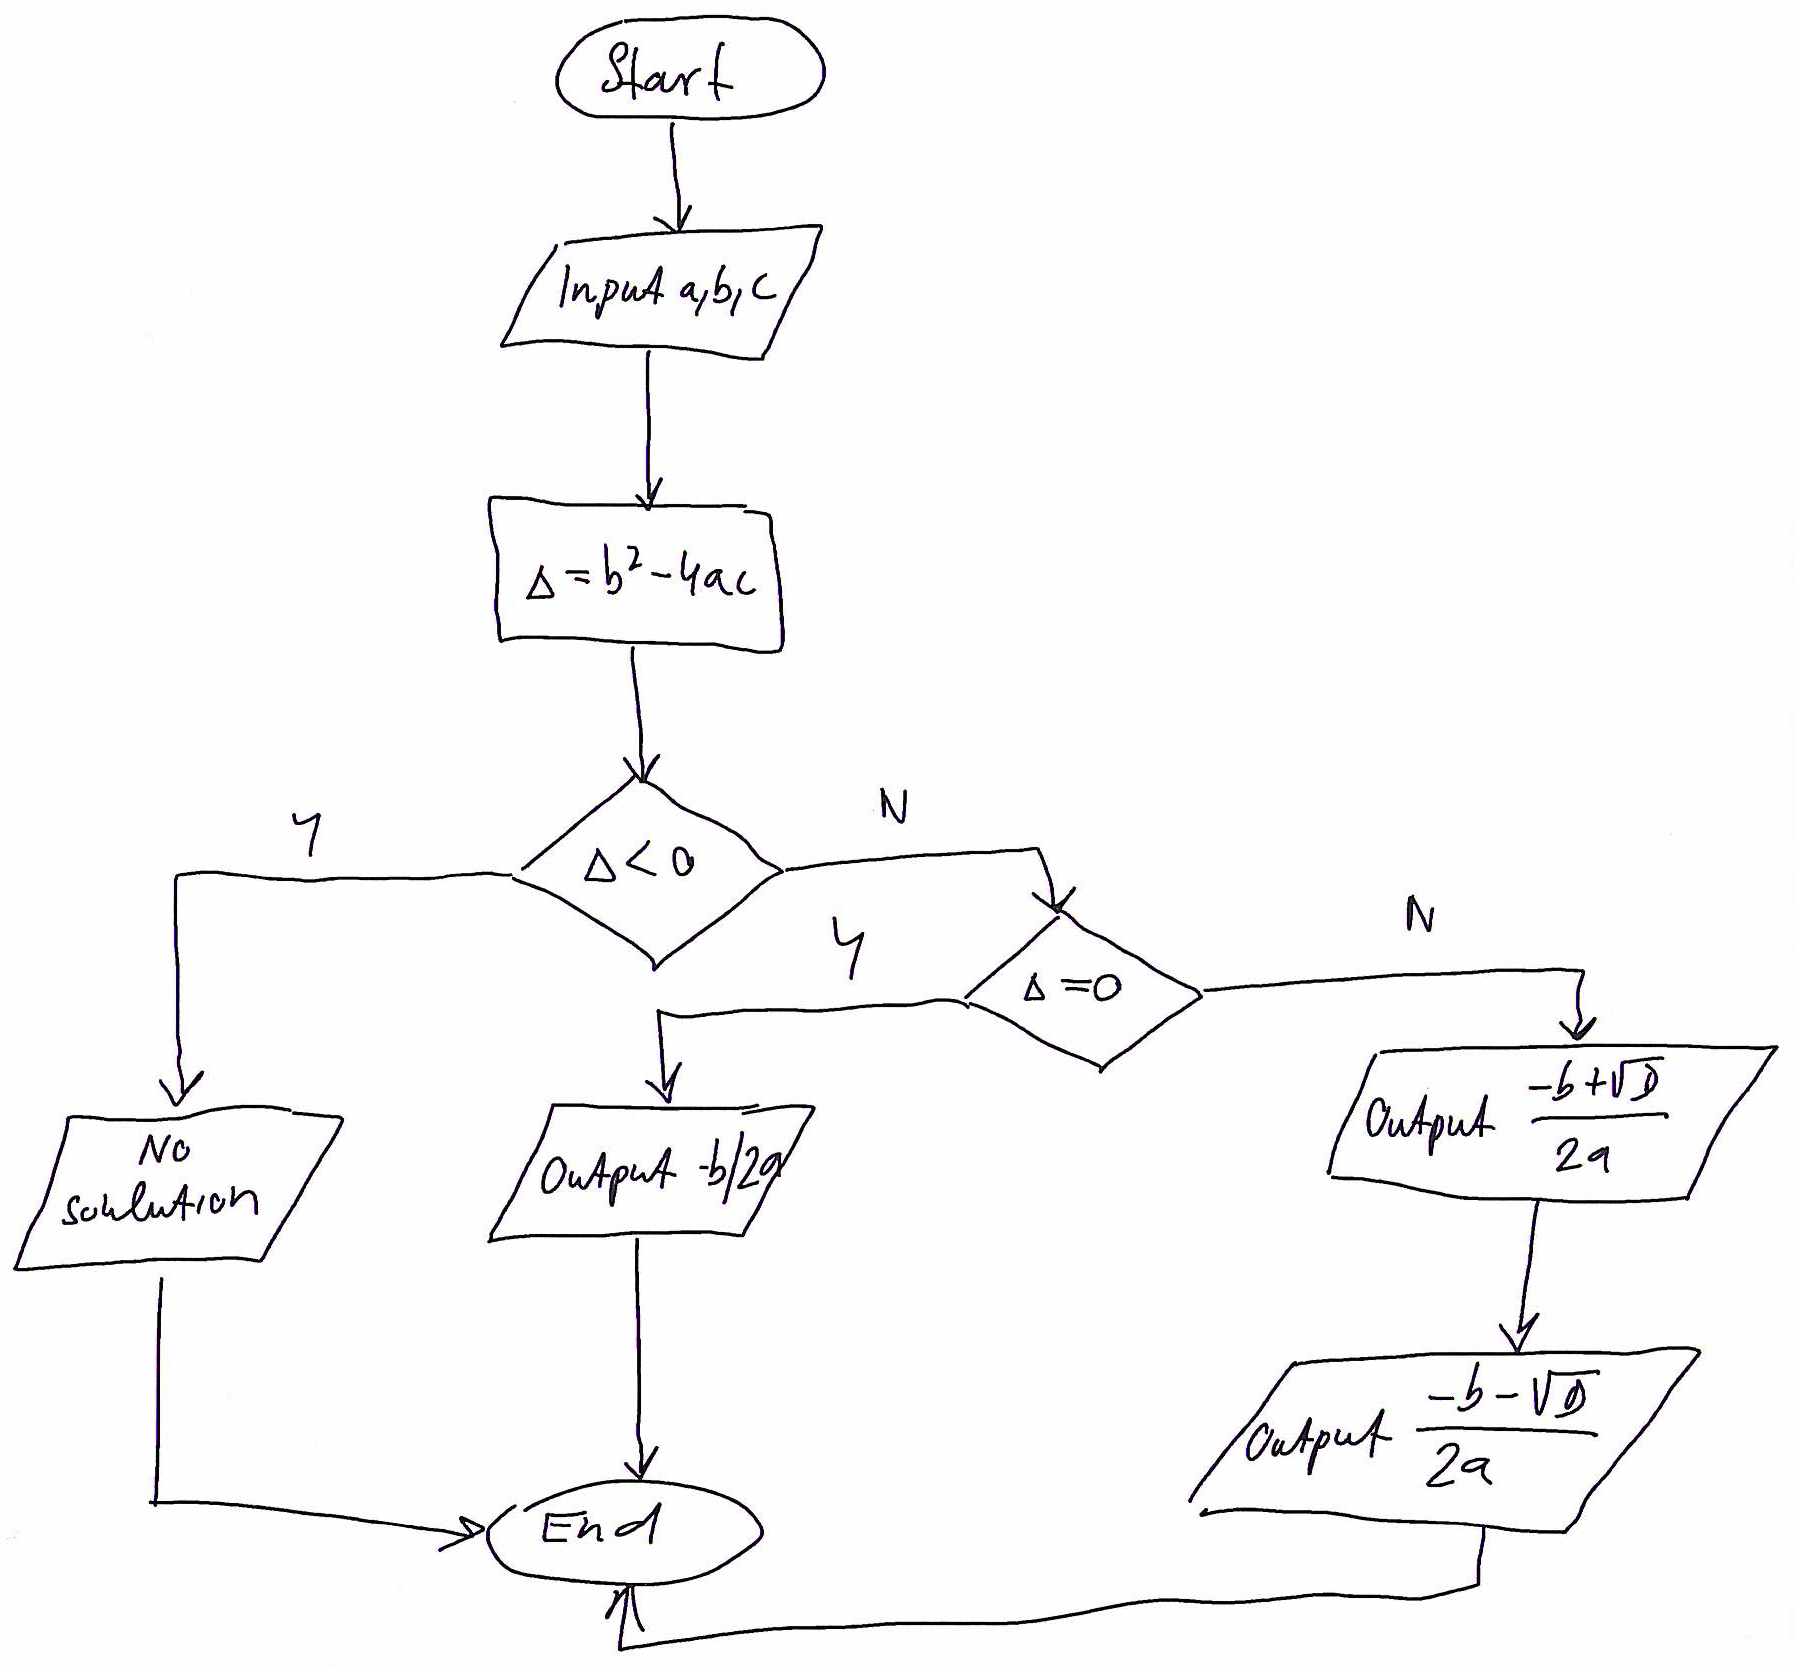 Start
Input a,b,c
Δ = b² - 4ac
Y
Δ < 0
N
Y
Δ = 0
N
No
soulution
Output -b/2a
Output (-b+√D)/2a
Output (-b-√D)/2a
End